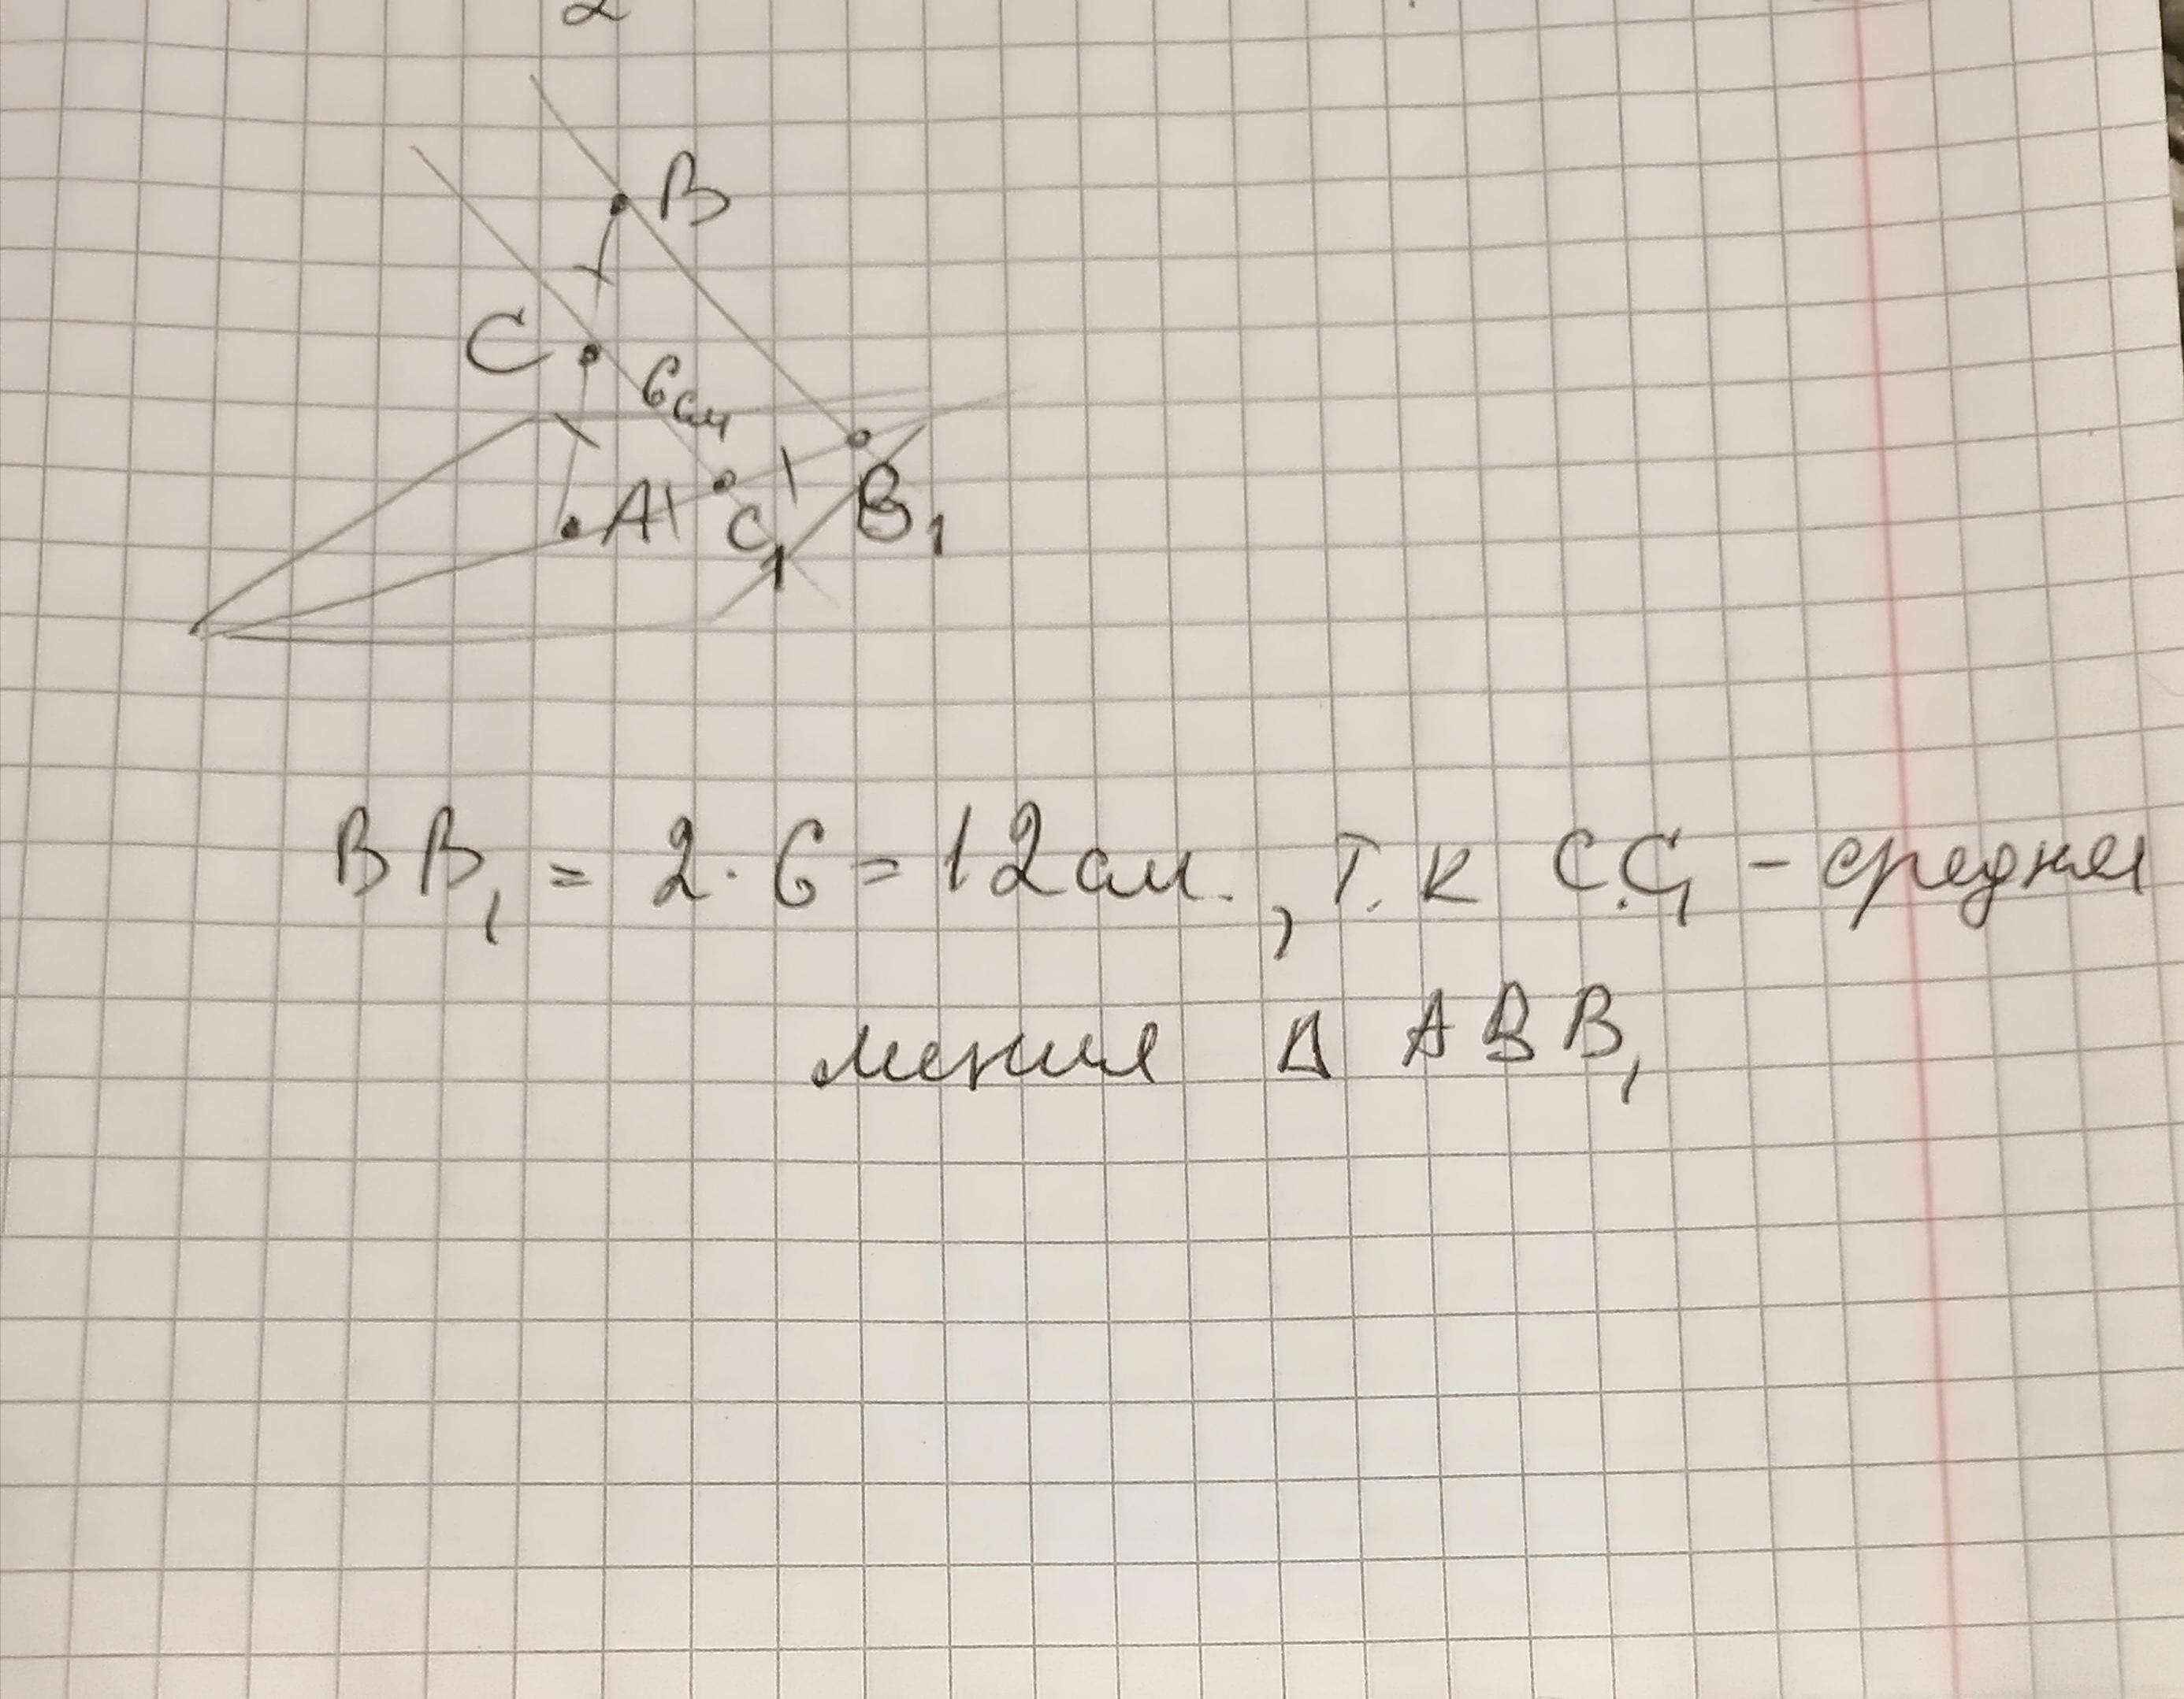 2
B
C
6см
A
C₁
B₁
BB₁ = 2 · 6 = 12 см., т. к CC₁ - средняя
линия Δ ABB₁